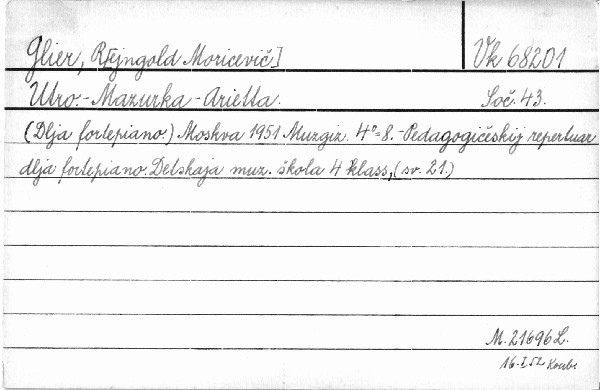 Glier, R[ejngold Moricevič] Vk 68201
Utro.-Mazurka-Arietta. Soč. 43.
(Dlja fortepiano.) Moskva 1951 Muzgiz. 4°=8.-Pedagogičeskij repertuar
dlja fortepiano. Detskaja muz. škola 4 klass, (sv. 21.)
M. 21696 L.
16-I 52